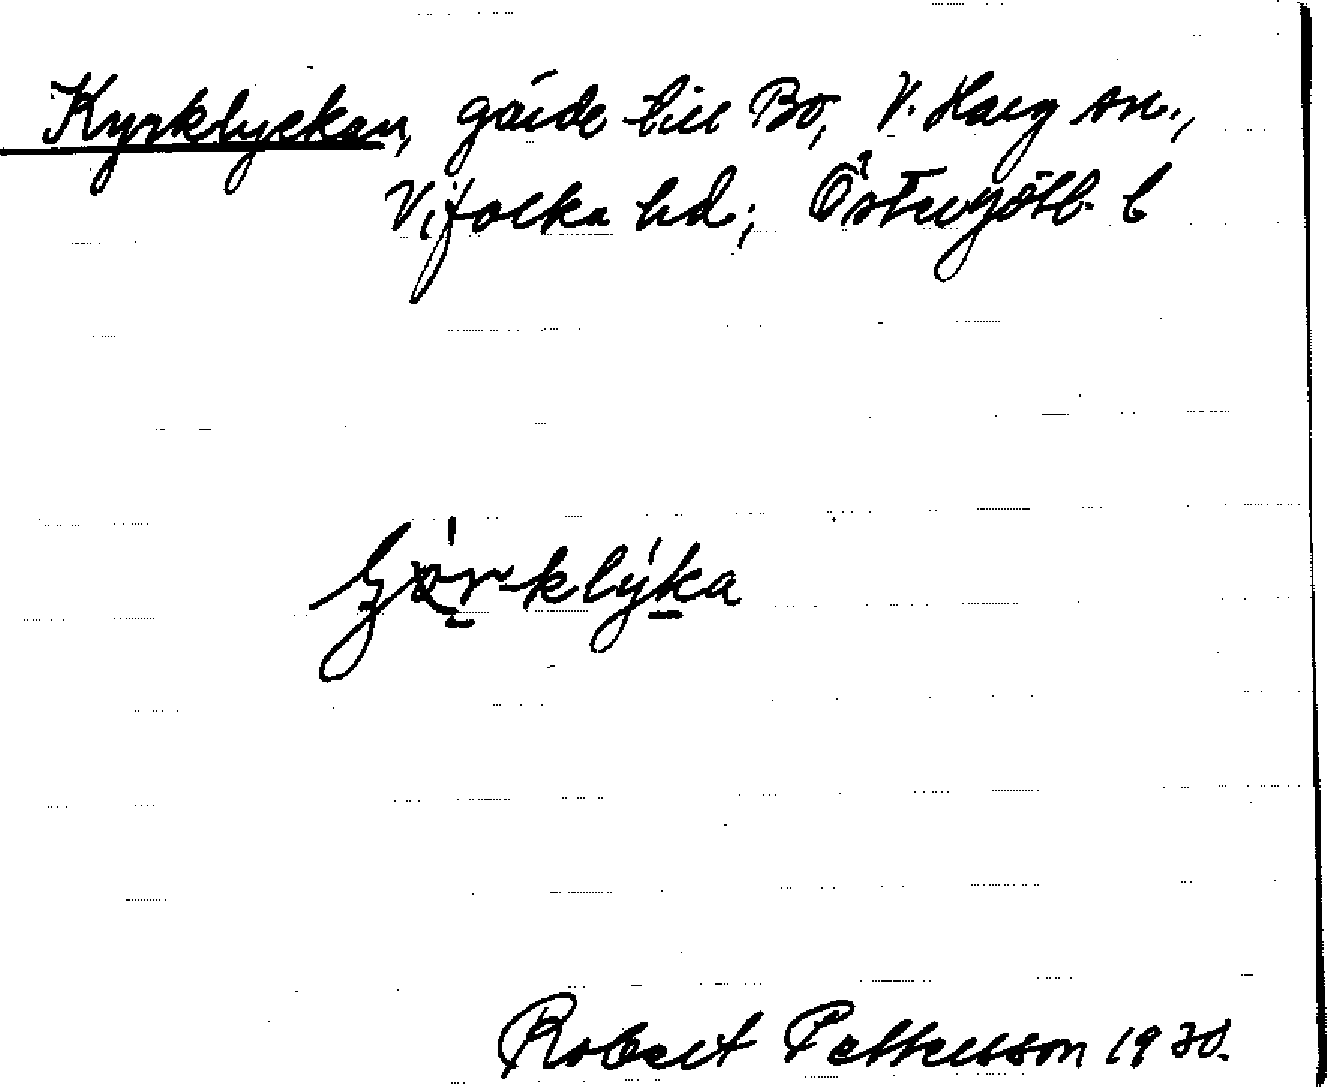 Kyrklyckan, gärde till Bo, V. Harg sn.,
Vifolka hd; Östergötl. l
Robert Pettersson 1930.